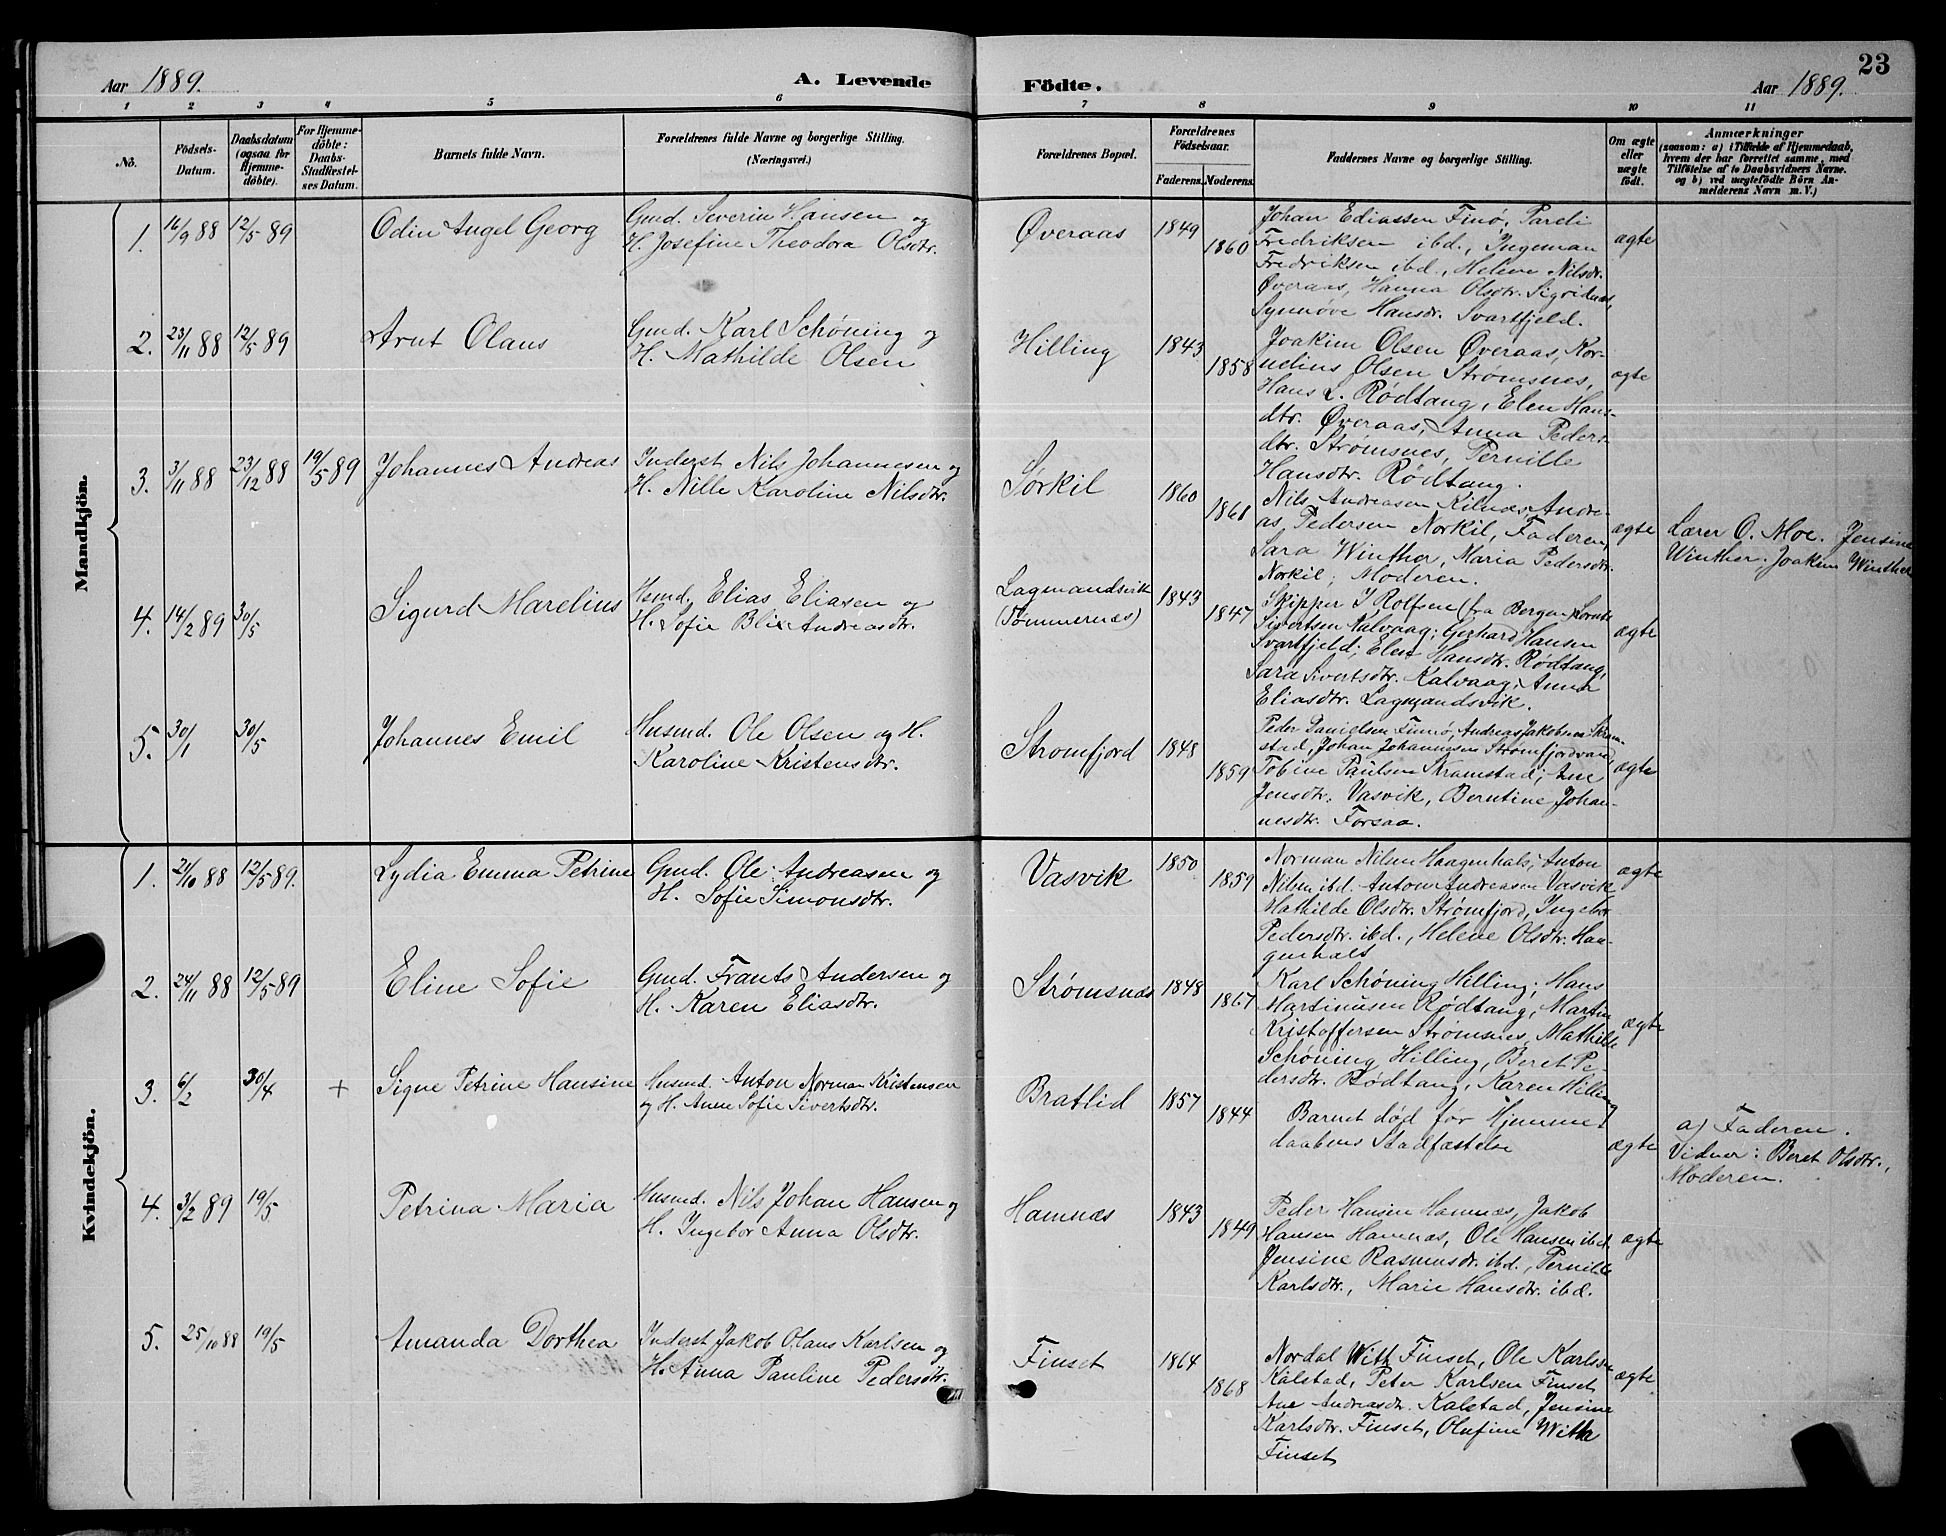 Aar 1889. A. Levende Födte. Aar 1889. 23
1 2 3 4 5 6 7 8 9 10 11
No.
Födsels-
Datum.
Daabsdatum
(ogsaa for
Hjemme-
döbte).
For Hjemme-
döbte:
Daabs-
Stadfæstel-
ses Datum.
Barnets fulde Navn.
Forældrenes fulde Navne og borgerlige Stilling.
(Næringsvei.)
Forældrenes Bopæl.
Forældrenes
Födselsaar.
Faderens. Moderens.
Faddernes Navne og borgerlige Stilling.
Om ægte
eller
uægte
födt.
Anmærkninger
(saasom: a) i Tilfælde af Hjemmedaab,
hvem der har forrettet samme, med
Tilföielse af to Daabsvidners Navne.
og b) ved uægtefödte Börn An-
melderens Navn m. V.)
Mandkjön.
1. 16/9 88 12/5 89 Odin Angel Georg
Gmd. Severin Hansen og
H. Josefine Theodora Olsdtr.
Øveraas 1849 1860
Johan Ediassen Finø, Pareli
Fredriksen ibd., Ingeman
Fredriksen ibd., Helene Nilsdr.
Øveraas, Hanna Olsdtr. Sigridnæs,
Synnøve Hansdr. Svartfjeld.
ægte
2. 23/11 88 12/5 89 Arnt Olaus
Gmd. Karl Schøning og
H. Mathilde Olsen
Hilling 1843 1858
Joakim Olsen Øveraas, Kor-
nelius Olsen Strømsnes,
Hans L. Rödtang, Elen Hans-
dtr. Øveraas, Anna Peders-
dtr. Strømsnes, Pernille
Hansdtr. Rödtang.
ægte
3. 3/11 88 23/12 88 19/5 89 Johannes Andreas
Inderst Nils Johannesen og
H. Nille Karoline Nilsdtr.
Sørkil 1860 1861
Nils Andreasen Kilnæs, Andre-
as Pedersen Norkil, Faderen,
Sara Winther, Maria Pedersdtr.
Norkil, Moderen.
ægte
Lærer O. Moe. Jensine
Winther, Joakim Winther
4. 14/2 89 30/5 Sigurd Marelius
Husmd. Elias Eliasen og
H. Sofie Blix Andreasdtr.
Lagmandsvik
(Tømmernæs) 1843 1847
Skipper J Rolfsen (fra Bergen)
Sivertsen Kalvaag; Gerhard Hansen
Svartfjeld; Elen Hansdtr. Rödtang,
Sara Sivertsdtr. Kalvaag; Anna
Eliasdtr. Lagmandsvik.
ægte
5. 30/1 30/5 Johannes Emil
Husmd. Ole Olsen og H.
Karoline Kristensdtr.
Strömfjord 1848 1859
Peder Danielsen Finnø, Andreas Jakobsen Skram-
stad, Johan Johannesen Strømfjordvand,
Tobine Paulsen Kramstad; Ane
Jensdtr. Vasvik, Berntine Johan-
nesdtr. Forsaa.
ægte
Kvindekjön.
1. 21/10 88 12/5 89. Lydia Emma Petrine
Gmd. Ole Andreasen og
H. Sofie Simonsdtr.
Vasvik 1850 1859
Norman Nilsen Haagenhals; Anton
Nilsen ibd. Anton Andreasen Vasvik
Mathilde Olsdtr. Strömfjord, Ingebor
Pedersdtr. ibd., Helene Olsdtr. Haa-
genhals
ægte
2. 24/11 88 12/5 89 Eline Sofie
Gmd. Frants Andersen og
H. Karen Eliasdtr.
Strømsnæs 1848 1867
Karl Schøning Hilling; Hans
Martinusen Rödtang, Martin
Kristoffersen Strømsnes, Mathilde
Schøning Hilling, Beret Pe-
dersdtr. Rödtang, Karen Hilling
ægte
3. 6/2 30/4 + Signe Petrine Hansine
Husmd. Anton Norman Kristensen
og H. Anne Sofie Sivertsdtr.
Bratlid 1857 1844
Barnet död før Hjemme-
daabens Stadfæstelse
ægte
a) Faderen.
Vidner: Beret Olsdtr.,
Moderen.
4. 3/2 89 19/5 Petrina Maria
Husmd. Nils Johan Hansen og
H. Ingebor Anna Olsdtr.
Hamnæs 1843 1849
Peder Hansen Hamnæs, Jakob
Hansen Hamnæs, Ole Hansen ibd.
Jensine Rasmusdr. ibd., Pernille
Karlsdtr., Marie Hansdtr. ibd.
ægte
5. 25/10 88 19/5 Amanda Dorthea
Inderst Jakob Olaus Karlsen og
H. Anna Pauline Pedersdtr.
Finset 1864 1868
Nordal With Finset, Ole Karlsen
Kalstad, Peter Karlsen Finset
Ane Andreasdtr. Kalstad, Jensine
Karlsdtr. Finset, Olufine With
Finset
ægte.